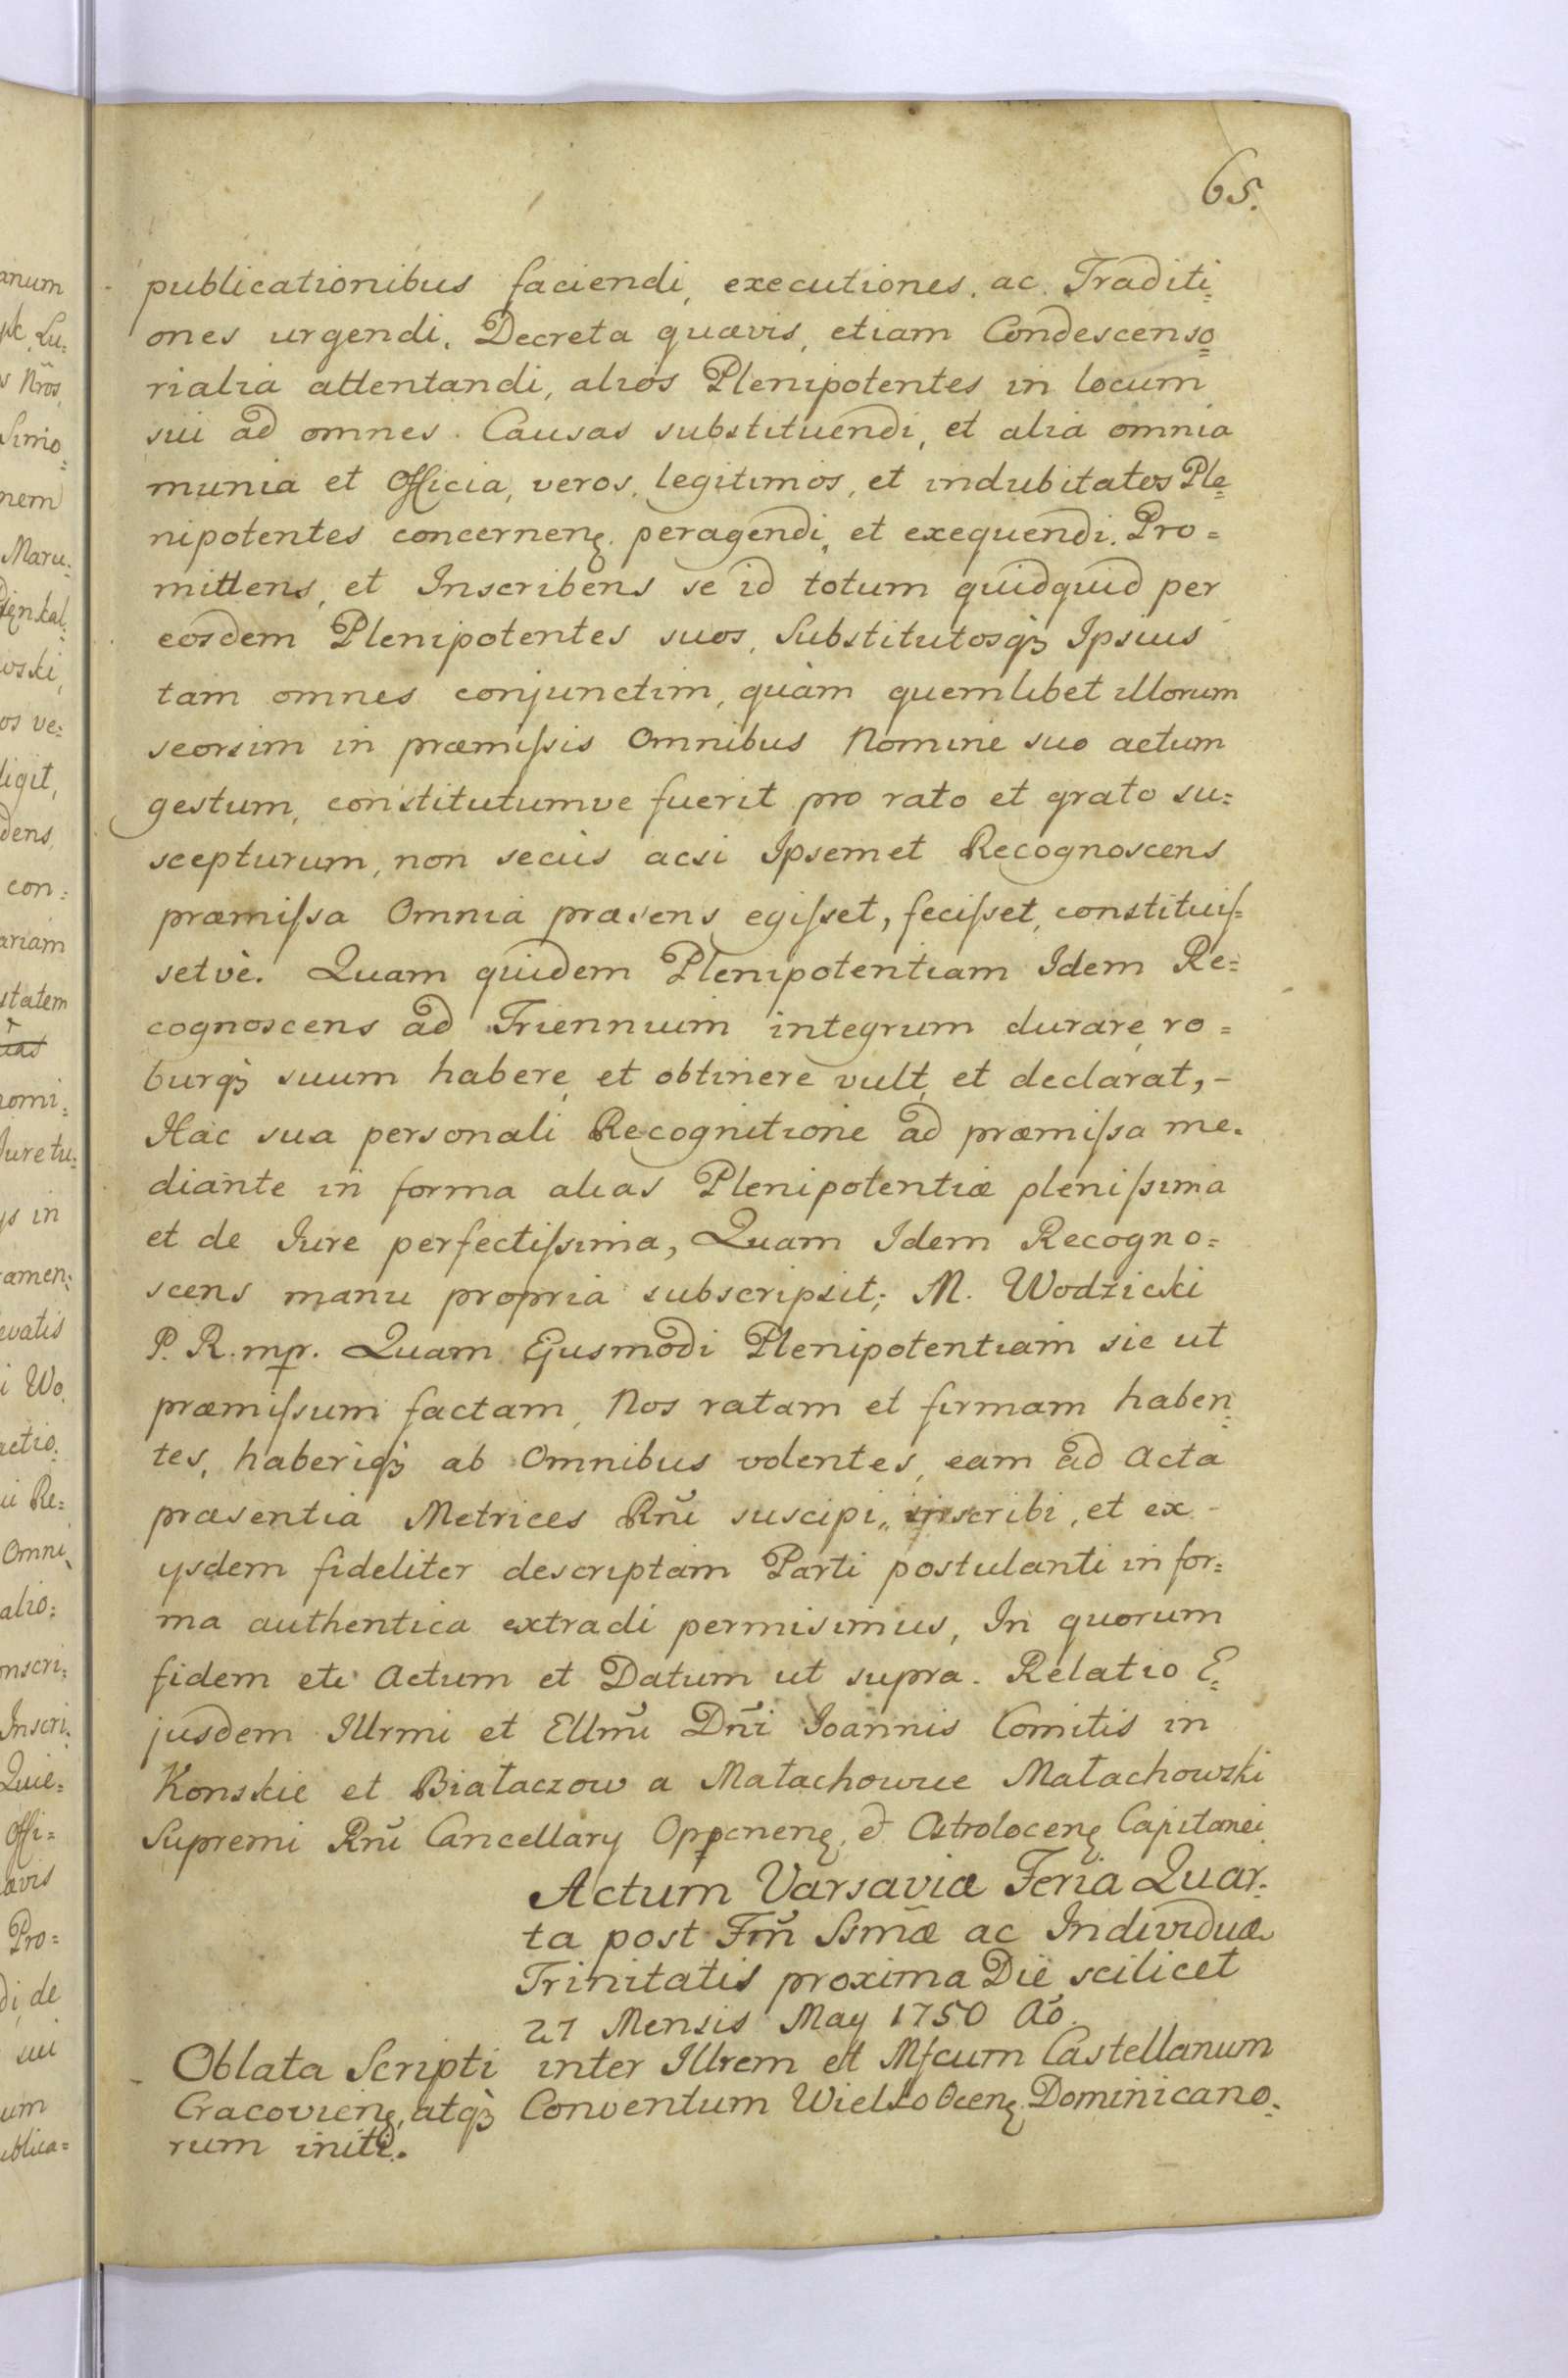 65.
publicationibus faciendi, executiones, ac Traditi=
ones urgendi. Decreta quævis, etiam Condescenso=
rialia attentandi, alios Plenipotentes in locum
sui ad omnes Causas substituendi, et alia omnia
munia et Officia, veros, legitimos, et indubitatos Ple=
nipotentes concernenȩ. peragendi, et exequendi. Pro=
mittens, et Inscribens se id totum quidquid per
eosdem Plenipotentes suos, Substitutosqȝ Ipsius
tam omnes conjunctim, quàm quemlibet illorum
seorsim in præmiſsis Omnibus Nomine suo actum
gestum, constitutumve fuerit pro rato et grato su=
scepturum, non secùs acsi Ipsemet Recognoscens
præmiſsa Omnia præsens egiſset, feciſset, constituiſ=
setvè. Quam quidem Plenipotentiam Idem Re=
cognoscens ad Triennium integrum durare, ro=
burqȝ suum habere, et obtinere vult, et declarat, -
Hac sua personali Recognitione ad præmiſsa me=
diante in forma alias Plenipotentiæ pleniſsima
et de Iure perfectiſsima, Quam Idem Recogno=
scens manu propria subscripsit; M. Wodzicki
P. R. mp. Quam Ejusmodi Plenipotentiam sic ut
præmiſsum factam, Nos ratam et firmam haben=
tes, haberiqȝ ab Omnibus volentes, eam ad Acta
præsentia Metrices Rñi suscipi, inscribi, et ex -
ysdem fideliter descriptam Parti postulanti in for=
ma authentica extradi permisimus, In quorum
fidem etc Actum et Datum ut supra. Relatio E=
jusdem Illrmi et Ellm̃i Dñi Ioannis Comitis in
Konskie et Białaczow a Małachowice Małachowski
Supremi Rñi Cancellary Oppcnenȩ, et Ostrolocenȩ Capitanei
Actum Varsaviæ Feria Quar=
ta post Fm̃ Ssmæ ac Individuæ
Trinitatis proxima Die scilicet
27 Mensis May 1750 Ao.
Oblata Scripti inter Illrem et Mfcum Castellanum
Cracovienȩ, atqȝ Conventum Wielkoocenȩ Dominicano=
rum initi.